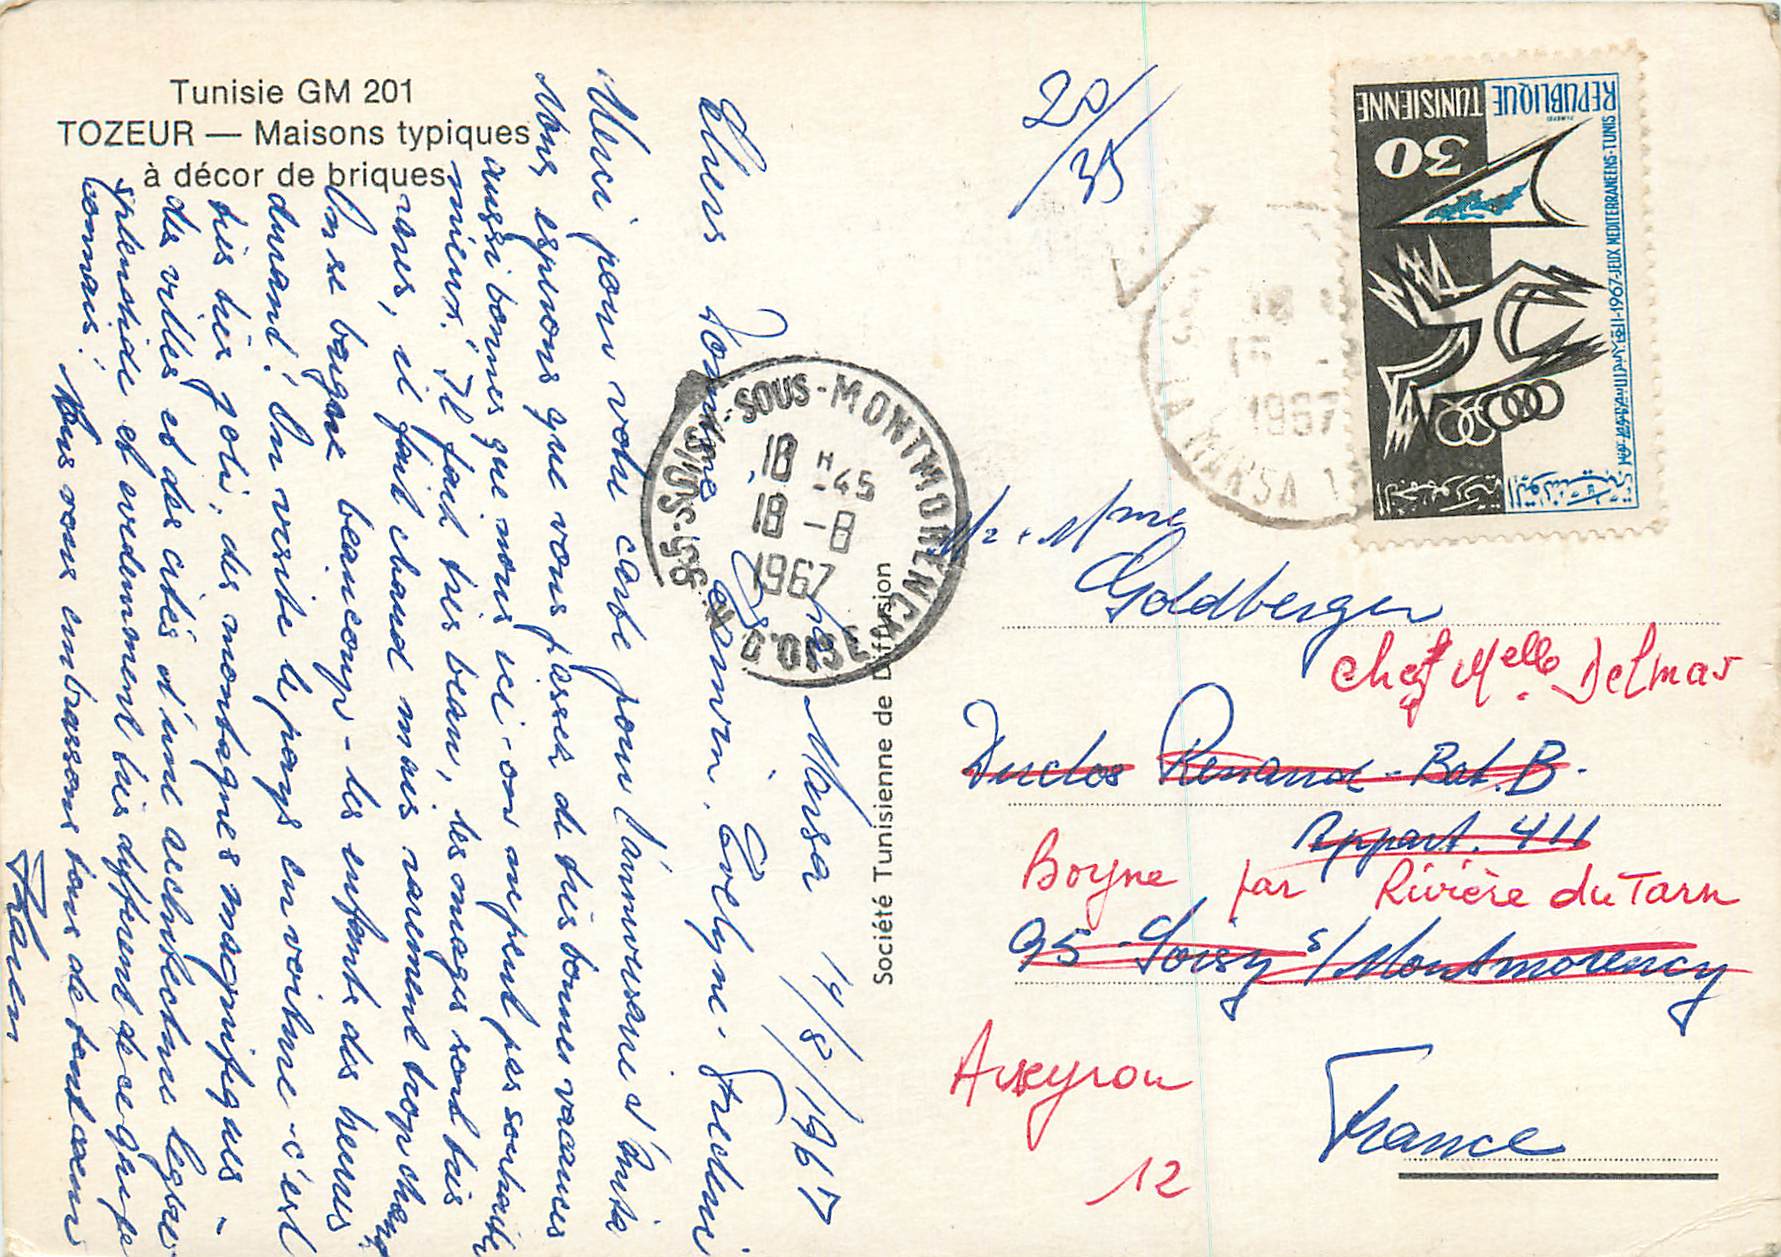 Tunisie GM 201
TOZEUR — Maisons typiques
à décor de briques
La Marsa 14/8/1967
Chers Evelyne. Frédéric
Merci pour votre carte pour l'anniversaire d'Anita
Nous espérons que vous passez de très bonnes vacances
aussi bonnes que nous ici - on ne peut pas souhaiter
mieux! Il fait très beau, les nuages sont très
rares, il fait chaud mais rarement trop chaud
On se baigne beaucoup - les enfants des heures
durant! On visite le pays en voiture - c'est
très très joli, des montagnes magnifiques -
des villes et des cités d'une architecture
splendide et evidemment très différent de ce qu'on
connais!
Nous vous embrassons tous de tout coeur
Société Tunisienne de Diffusion
20/35
REPUBLIQUE TUNISIENNE
30
1967-JEUX MEDITERRANEENS-TUNIS
الجمهورية التونسية
LA MARSA
18
1967
95 SOISY-SOUS-MONTMORENCY
18 H -45
18 -8
1967
VAL D'OISE
Mr + Mme
Goldberger
chez Melle Delmas
Duclos Renand - Bat. B.
Appart. 411
Boyne par Rivière du Tarn
95 - Soisy s/Montmorency
Aveyron
12
France